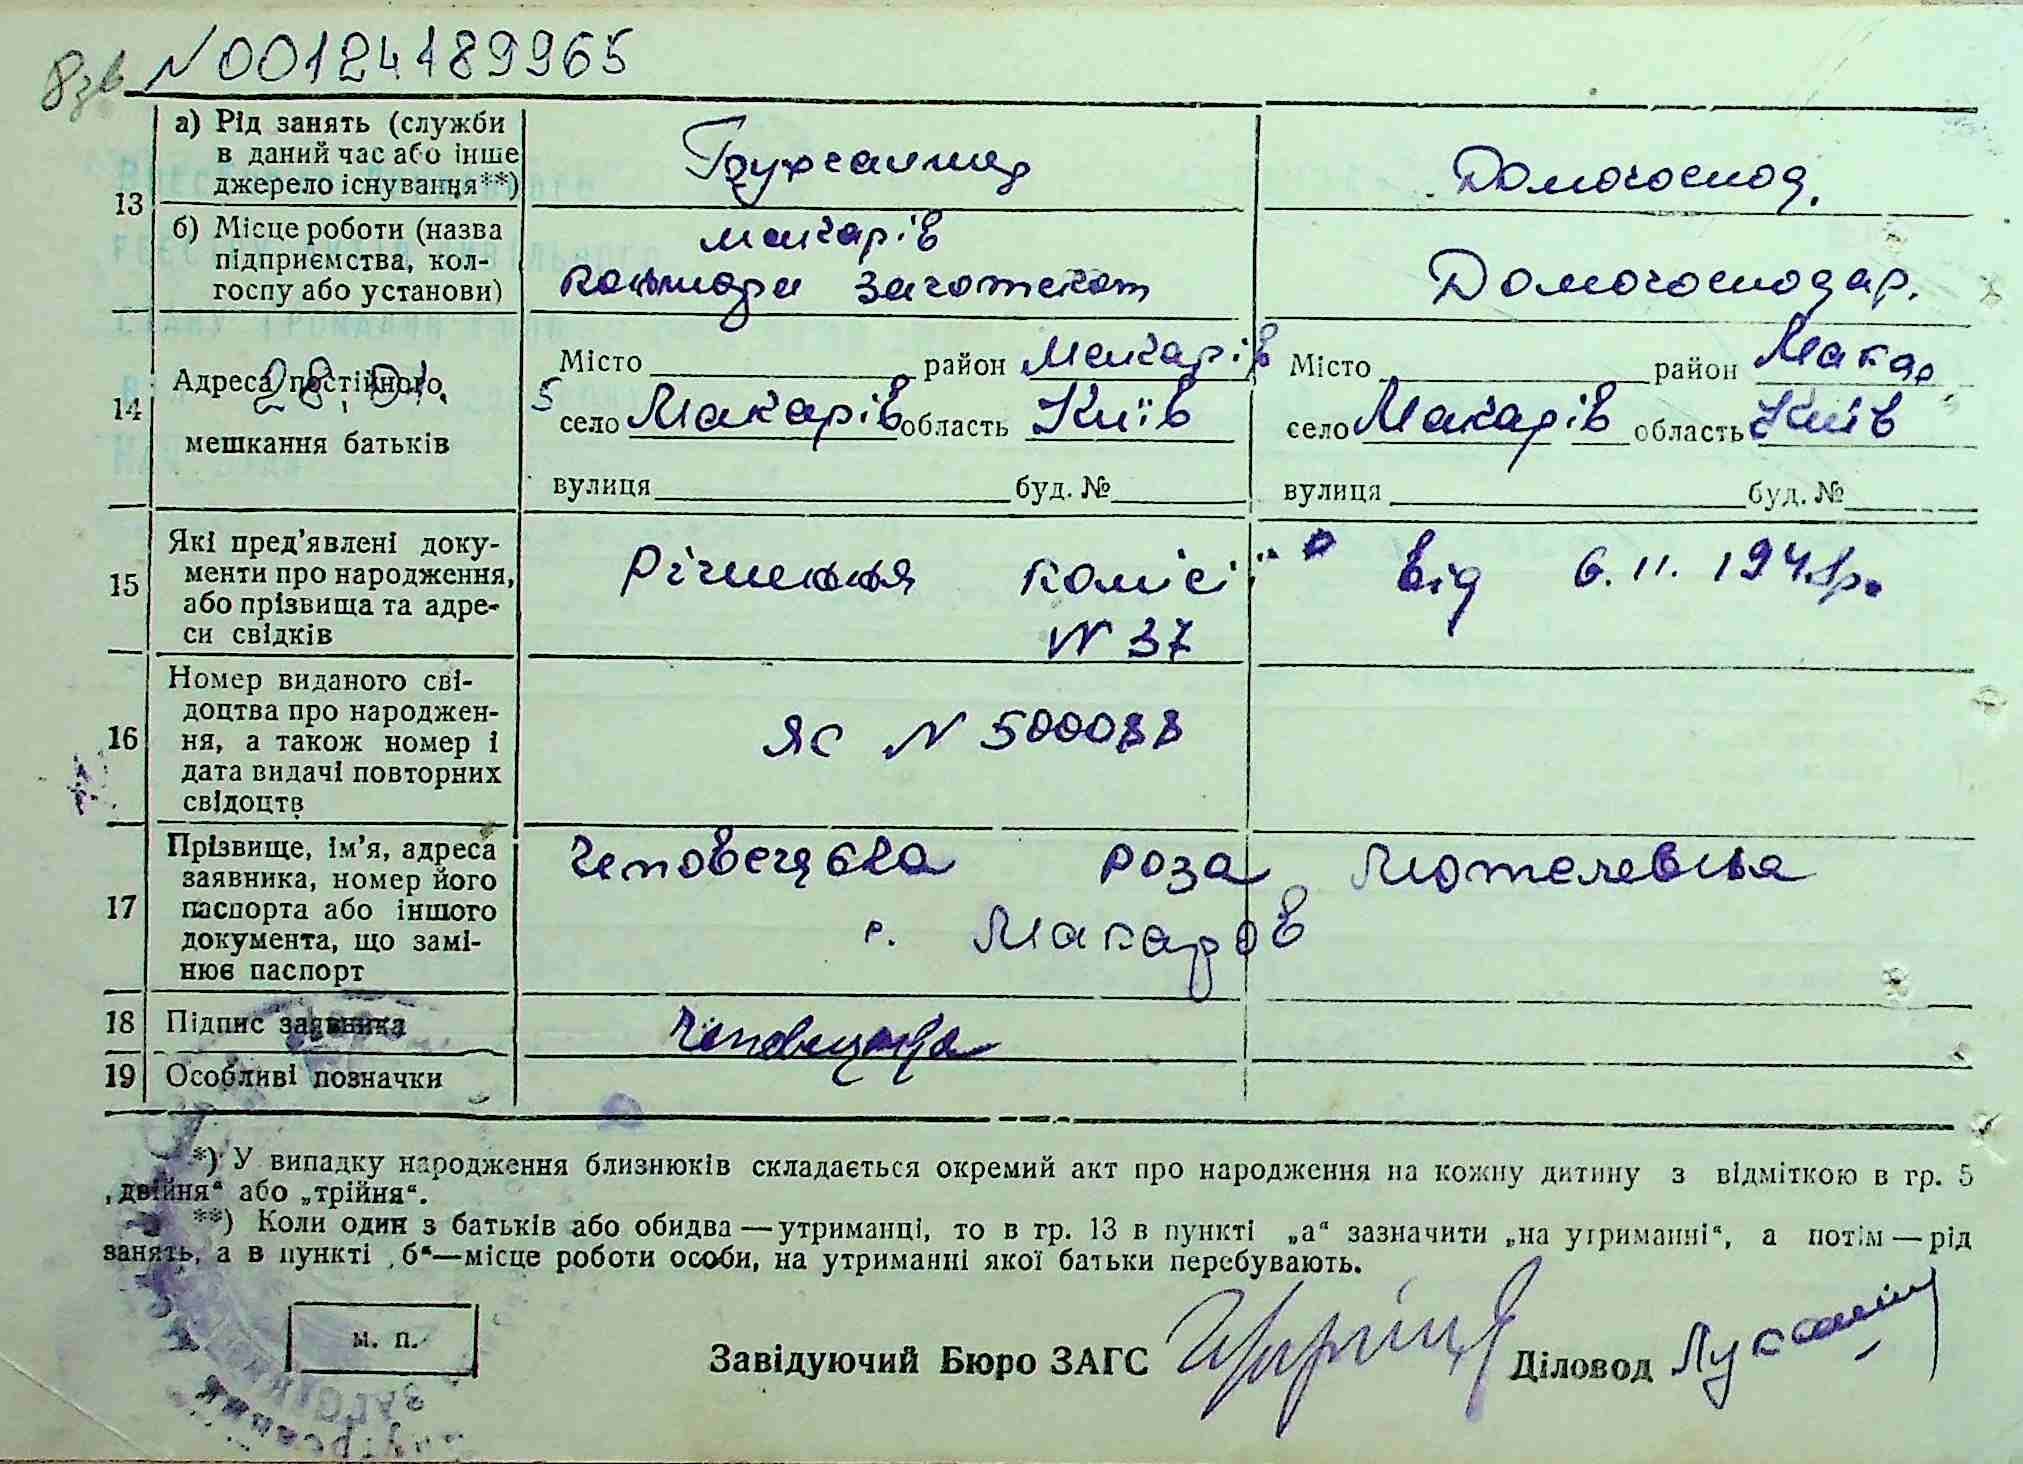 N00124189965
13
а) Рід занять (служби
в даний час або інше
джерело існування**)
Домогоспод.
б) Місце роботи (назва
підприємства, кол-
госпу або установи)
Макарів
контори Заготскот
Домогосподар.
14
Адреса постійного
28.01.
мешкання батьків
Місто район Макарів
село Макарів область Київ
вулиця буд. №
Місто район Макар
село Макарів область Київ
вулиця буд. №
15
Які пред'явлені доку-
менти про народження,
або прізвища та адре-
си свідків
Рішення комісії від 6.11.1941р.
N 37
16
Номер виданого сві-
доцтва про народжен-
ня, а також номер і
дата видачі повторних
свідоцтв
ЯС N 500088
17
Прізвище, ім'я, адреса
заявника, номер його
паспорта або іншого
документа, що замі-
нює паспорт
Чеповецька Роза Мотелевна
с. Макаров
18
Підпис заявника
Чеповецька
19
Особливі позначки
*) У випадку народження близнюків складається окремий акт про народження на кожну дитину з відміткою в гр. 5
„двійня“ або „трійня“.
**) Коли один з батьків або обидва — утриманці, то в гр. 13 в пункті „а“ зазначити „на утриманні“, а потім — рід
занять, а в пункті „б“—місце роботи особи, на утриманні якої батьки перебувають.
м. п.
Завідуючий Бюро ЗАГС
Діловод